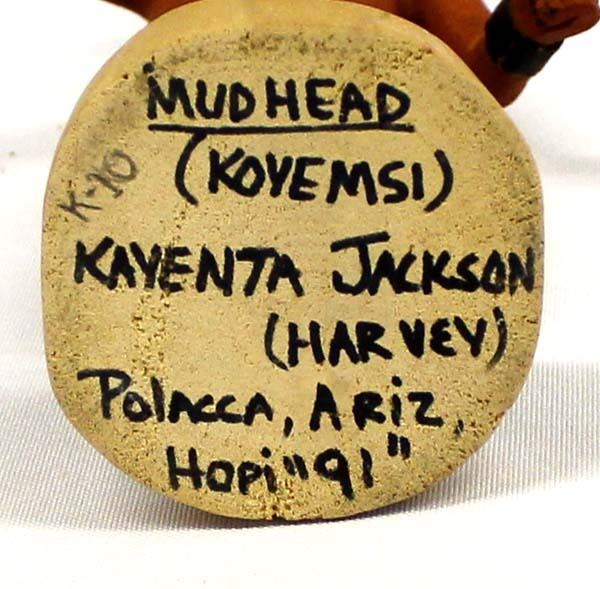 MUDHEAD
(KOYEMSI)
K-70
KAYENTA JACKSON
(HARVEY)
Polacca, Ariz,
Hopi "91"